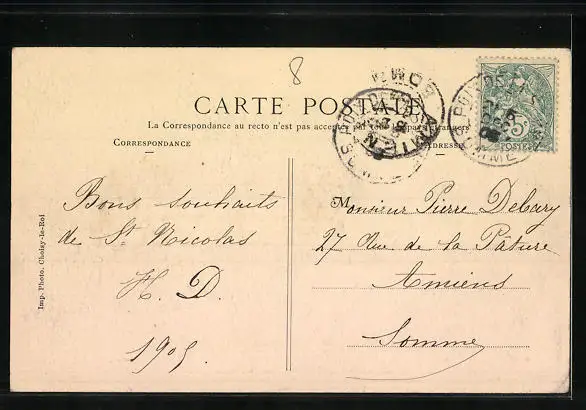 8
CARTE POSTALE
La Correspondance au recto n'est pas acceptée par tous les pays étrangers
CORRESPONDANCE
ADRESSE
Bons souhaits
de St Nicolas
H. D.
1905
Monsieur Pierre Debary
27 Rue de la Pâture
Amiens
Somme
Imp. Photo. Choisy-le-Roi
5c
POSTES